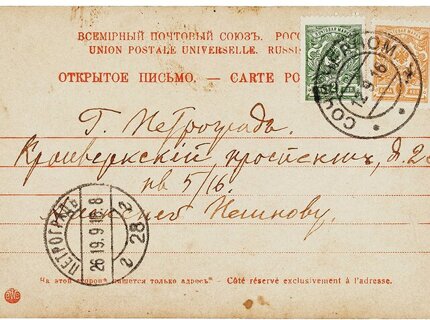 ВСЕМІРНЫЙ ПОЧТОВЫЙ СОЮЗЪ. РОСС
UNION POSTALE UNIVERSELLE. RUSSIE
ОТКРЫТОЕ ПИСЬМО. — CARTE PO
СОЧИ ЧЕРНОМ
12 9 16
Г. Петроградъ.
Кронверкскій проспектъ, д. 23
кв 5/16.
Пешкову
ПЕТРОГРАДЪ
26 19.9.16. 8
28
На этой сторонѣ пишется только адресъ. — Côté réservé exclusivement à l'adresse.